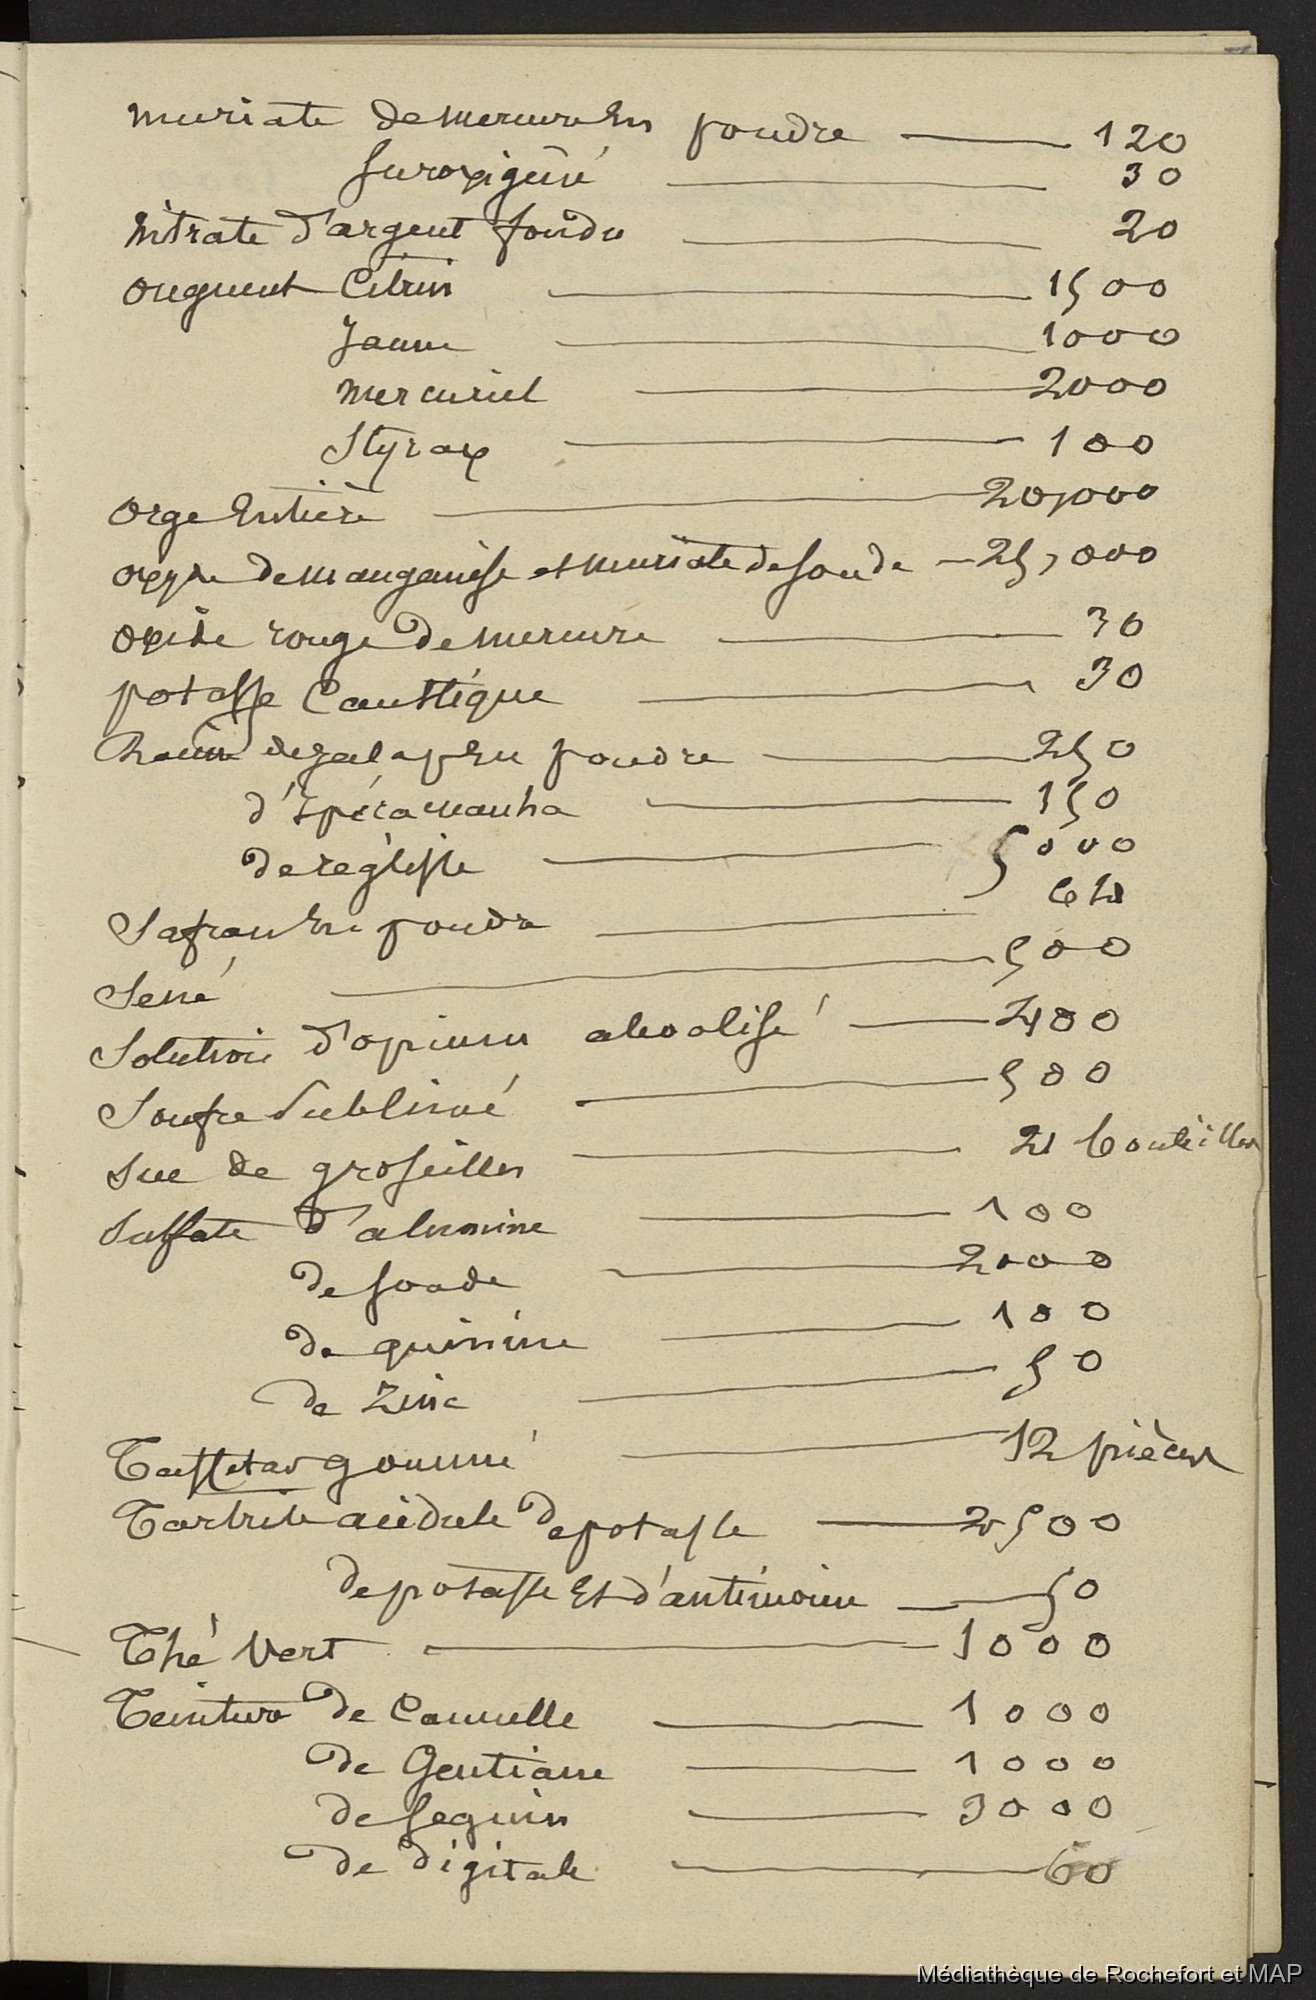 muriate de mercure En poudre — 120
suroxigéné — 30
Nitrate d'argent fondu — 20
onguent Citrin — 1500
Jaune — 1000
mercuriel — 2000
Styrax — 100
orge Entière — 20,000
oxyde de manganèse et muriate de soude — 25,000
oxide rouge de mercure — 30
potasse Caustique — 30
de jalap En poudre — 250
d'Ipécacuanha — 150
de réglisse — 5000
Safran En poudre —
Séné — 500
Solution d'opium alcoolisé — 400
Soufre Sublimé — 500
Suc de groseilles — 21 bouteilles
Sulfate d'alumine — 100
de soude — 2000
de quinine — 100
de Zinc — 50
Taffetas gommé — 12 pièces
Tartrite acidule de potasse — 2500
de potasse Et d'antimoine — 50
Thé Vert — 1000
Teinture de Cannelle — 1000
de Gentiane — 1000
de seguin — 3000
de digitale — 60
Médiathèque de Rochefort et MAP